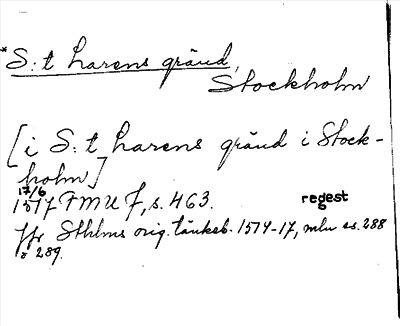 *S:t Larens gränd,
Stockholm
[i S:t Larens gränd i Stock-
holm]
17/6
1517 FMU 7, s. 463. regest
Jfr Sthlms orig. tänkeb. 1514-17, mlu ss. 288
o 289.